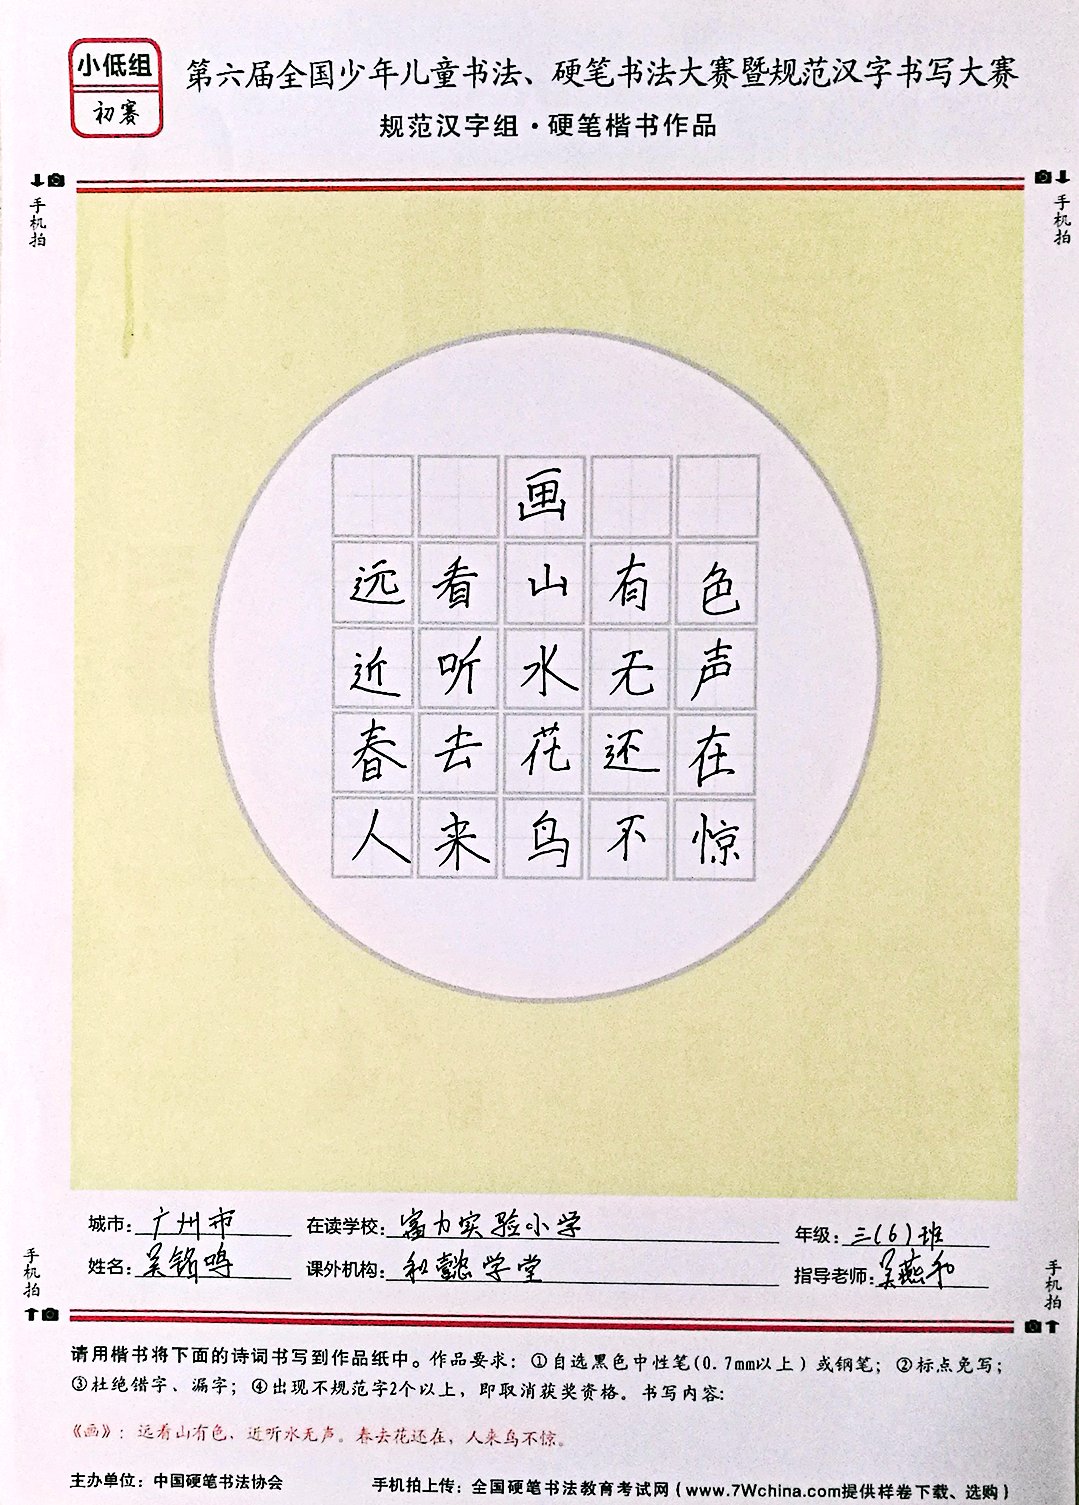 小低组
初赛
第六届全国少年儿童书法、硬笔书法大赛暨规范汉字书写大赛
规范汉字组·硬笔楷书作品
手机拍
手机拍
画
远看山有色
近听水无声
春去花还在
人来鸟不惊
城市：广州市 在读学校：富力实验小学 年级：三(6)班
姓名：吴铭鸣 课外机构：和懿学堂 指导老师：吴燕和
手机拍
手机拍
请用楷书将下面的诗词书写到作品纸中。作品要求：①自选黑色中性笔(0.7mm以上）或钢笔；②标点免写；
③杜绝错字、漏字；④出现不规范字2个以上，即取消获奖资格。书写内容：
《画》：远看山有色，近听水无声。春去花还在，人来鸟不惊。
主办单位：中国硬笔书法协会 手机拍上传：全国硬笔书法教育考试网（www.7Wchina.com提供样卷下载、选购）